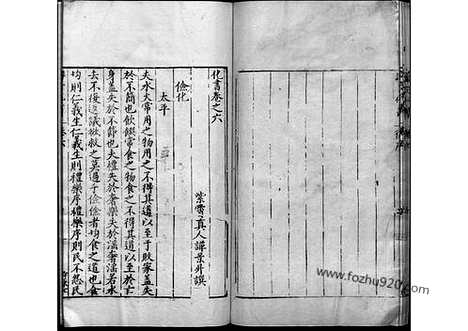 化書卷之六
紫霄真人譚景升譔
儉化
太平
夫水火常用之物用之不得其道以至于敗家蓋失
於不簡也飲饌常食之物食之不得其道以至於亡
身蓋失於不節也夫禮失於奢樂失於淫奢淫若水
去不復返議欲救之莫過乎儉儉者均食之道也食
均則仁義生仁義生則禮樂序禮樂序則民不怨民
www.fozhu920.com